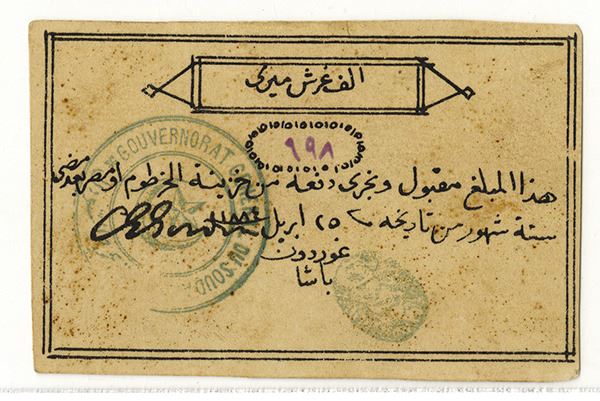 الف غرش ميرى
١٩٨
هذا المبلغ مقبول وتجرى دفعه من خزينة الخرطوم او مصر بعد مضى
ستة شهور من تاريخه ٢٥ ابريل ١٨٨٤
غوردون
باشا
GOUVERNORAT DU SOUD